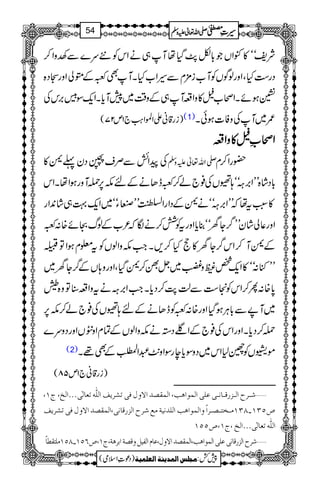 سیرتِ مصطفیٰ صلی اللہ تعالیٰ علیہ وسلم 54
شریف‘‘ کا کنواں جو بالکل پٹ گیا تھا آپ ہی نے اس کو نئے سرے سے کھدوا کر
درست کیا، اور لوگوں کو آب زمزم سے سیراب کیا۔ آپ بھی کعبہ کے متولی اور سجادہ
نشین ہوئے۔ اصحاب فیل کا واقعہ آپ ہی کے وقت میں پیش آیا۔ ایک سو بیس برس کی
عمر میں آپ کی وفات ہوئی۔ (1) (زرقانی علی المواہب ج۱ ص۷۲)
اصحابِ فیل کا واقعہ
حضور اکرم صلی اللہ تعالیٰ علیہ وسلم کی پیدائش سے صرف پچپن دن پہلے یمن کا
بادشاہ ’’ابرہہ‘‘ ہاتھیوں کی فوج لے کر کعبہ ڈھانے کے لئے مکہ پر حملہ آور ہوا تھا۔ اس
کا سبب یہ تھا کہ ’’ابرہہ‘‘ نے یمن کے دارالسلطنت ’’صنعاء‘‘ میں ایک بہت ہی شاندار
اور عالی شان ’’گرجا گھر‘‘ بنایا اور یہ کوشش کرنے لگا کہ عرب کے لوگ بجائے خانہ کعبہ
کے یمن آ کر اس گرجا گھر کا حج کیا کریں۔ جب مکہ والوں کو یہ معلوم ہوا تو قبیلہ
’’کنانہ‘‘ کا ایک شخص غیظ و غضب میں جل بھن کر یمن گیا، اور وہاں کے گرجا گھر میں
پاخانہ پھر کر اس کو نجاست سے لت پت کر دیا۔ جب ابرہہ نے یہ واقعہ سنا تو وہ طیش
میں آپے سے باہر ہو گیا اور خانہ کعبہ کو ڈھانے کے لئے ہاتھیوں کی فوج لے کر مکہ پر
حملہ کر دیا۔ اور اس کی فوج کے اگلے دستہ نے مکہ والوں کے تمام اونٹوں اور دوسرے
مویشیوں کو چھین لیا اس میں دو سو یا چار سو اونٹ عبدالمطلب کے بھی تھے۔ (2)
(زرقانی ج۱ ص۸۵)
شرح الزرقانی علی المواهب، المقصد الاول فی تشریف اللہ تعالی...الخ، ج۱،
ص۱۳۵۔۱۳۸ مختصراً والمواهب اللدنیة مع شرح الزرقانی، المقصد الاول فی تشریف
اللہ تعالی...الخ، ج۱، ص۱۵۵
شرح الزرقانی علی المواهب، المقصد الاول، عام الفیل وقصة ابرهة، ج۱، ص۱۵۶۔۱۵۸ ملتقطاً
پیش کش: مجلس المدینة العلمیة (دعوتِ اسلامی)